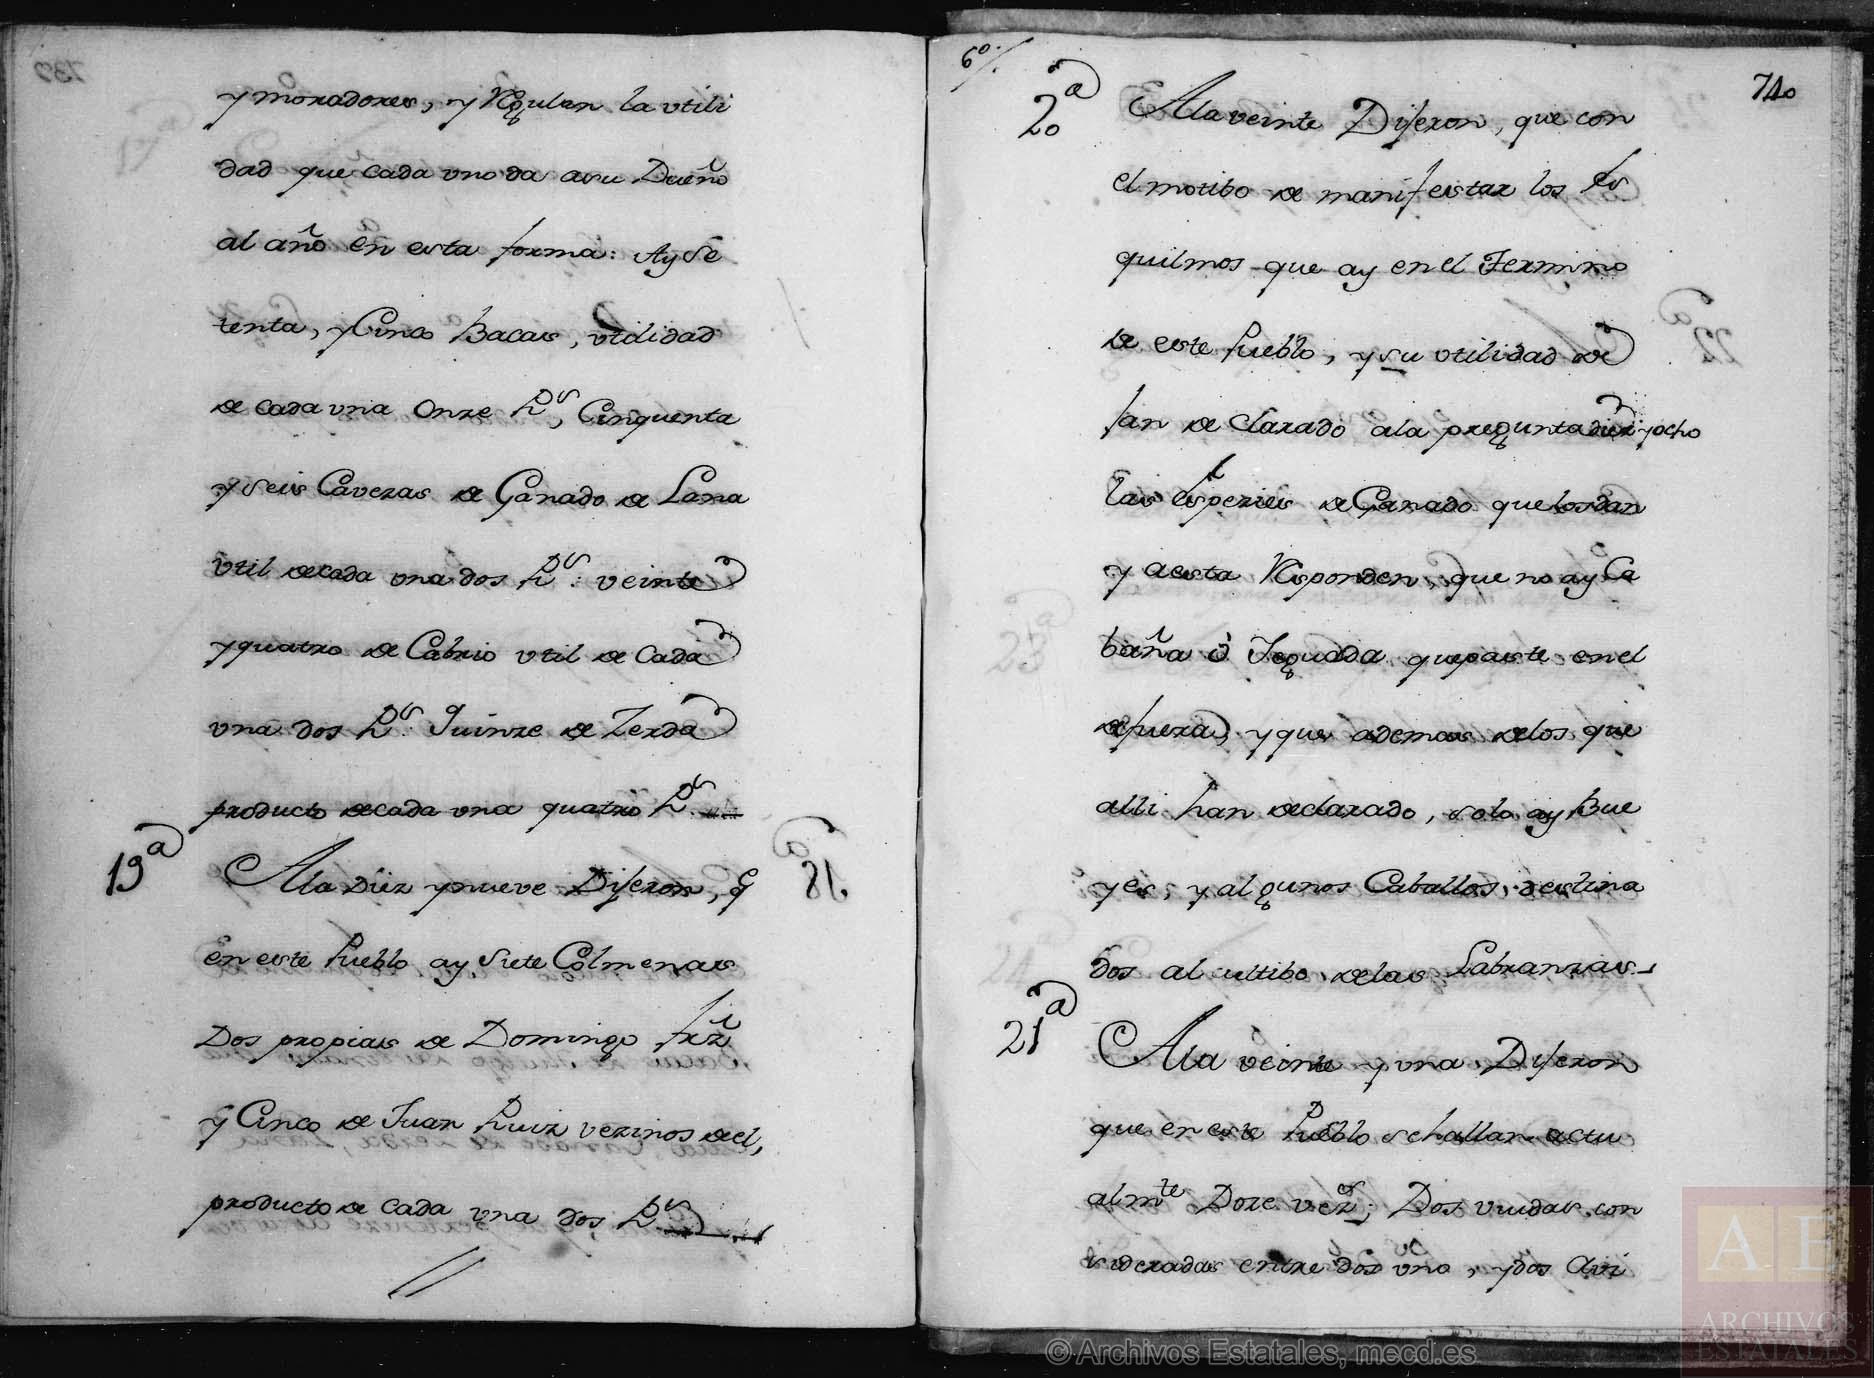 y moradores, y Rĝulan la vtili
dad que cada vno da asu Dueño
al año en esta forma: Ay Se
tenta, y Cinco Bacas, vtilidad
de cada vna Onze Rs, Cinquenta
y seis Cavezas de Ganado de Lana
vtil de cada vna dos Rs: veinte
y quatro de Cabrio vtil de Cada
vna dos Rs. Quinze de Zerda
producto de cada vna quatro Rs.
19a
Ala Diez y nueve Dijeron, q̃
En este Pueblo ay Siete Colmenas
Dos propias de Domingo frz̃
y Cinco de Juan Ruiz vezinos de el,
producto de cada vna dos Rs
6o/.
740
20a
Ala veinte Dijeron, que con
el motibo de manifestar los Es
quilmos que ay en el Termino
de este Pueblo, y su vtilidad de
Jan de Clarado ala pregunta diez y ocho
las Espezies de Ganado que los dan
y aesta Responden, que no ay Ca
baña ò Yeguada que paste en el
de fuera, y que ademas de los que
alli han declarado, solo ay Bue
yes, y algunos Caballos destina
dos al cultibo de las Labranzas
21a
Ala veinte y vna Dijeron
que en este Pueblo se hallan actu
almte Doze vezos; Dos viudas con
sideradas entre dos vno, y dos Avi
© Archivos Estatales, mecd.es
AE
ARCHIVOS
ESTATALES